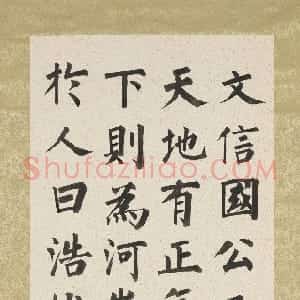 文信國公
天地有正
下則為河
於人曰浩
Shufaziliao.com